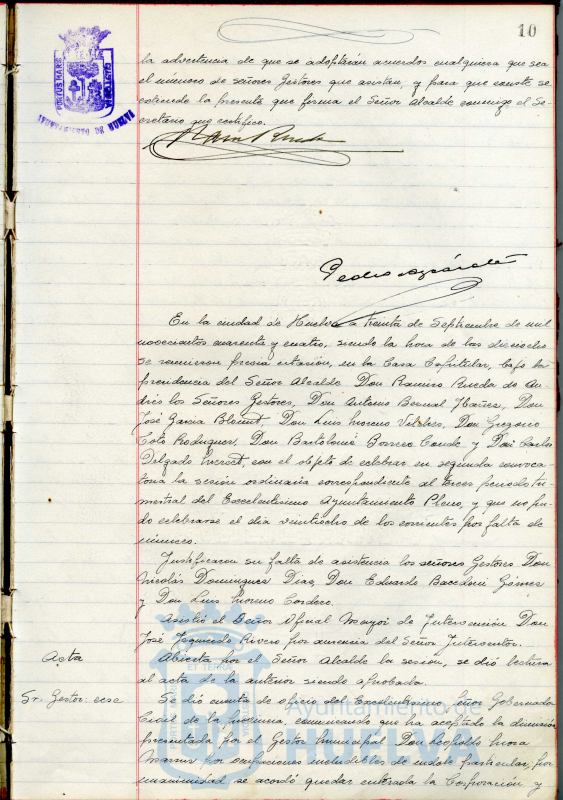 10
PORTUS MARIS ET TERRAE CUSTODIA
AYUNTAMIENTO DE HUELVA
la advertencia de que se adoptarán acuerdos cualquiera que sea
el número de señores Gestores que asistan, y para que conste se
extiende la presente que firma el Señor Alcalde conmigo el Se-
cretario que certifico.
En la ciudad de Huelva a treinta de Septiembre de mil
novecientos cuarenta y cuatro, siendo la hora de las dieciocho
se reunieron previa citación, en la Casa Capitular, bajo la
presidencia del Señor Alcalde Don Ramiro Rueda de An-
drés los Señores Gestores, Don Antonio Bernal Ibañez, Don
José Garcia Don Luis Moreno Don Gregorio
Coto Rodriguez, Don Bartolomé Borrero Conde y Don Carlos
Delgado con el objeto de celebrar en segunda convoca-
toria la sesión ordinaria correspondiente al tercer periodo tri-
mestral del Excelentísimo Ayuntamiento Pleno, y que no pu-
do celebrarse el día veintiocho de los corrientes por falta de
número.
Justificaron su falta de asistencia los señores Gestores Don
Nicolás Dominguez Diaz, Don Eduardo Gómez
y Don Luis Moreno Cordero.
Asistió el Señor Oficial Mayor de Intervención Don
José Izquierdo Rivero por ausencia del Señor Interventor.
Acta
Abierta por el Señor Alcalde la sesion, se dió lectura
al acta de la anterior siendo aprobada.
Sr. Gestor: cese
Se dió cuenta de oficio del Excelentísimo Señor Gobernador
Civil de la provincia, comunicando que ha aceptado la dimisión
presentada por el Gestor Municipal Don Leopoldo Mora
por ocupaciones ineludibles de indole particular, por
unanimidad se acordó quedar enterada la Corporación, y
Ayuntamiento de
HUELVA